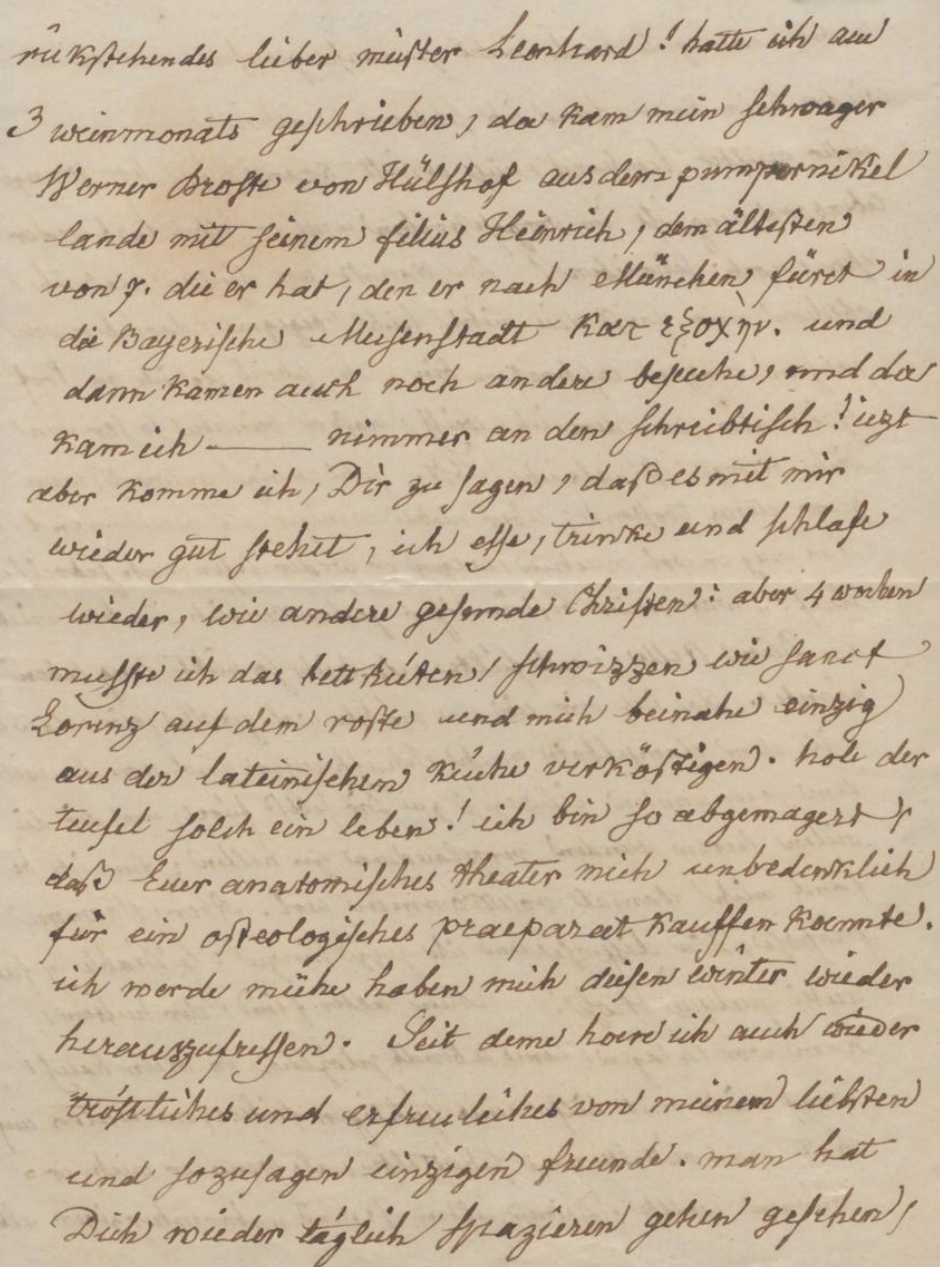 rükstehendes lieber meister Leonhard! hatte ich am
3 weinmonats geschrieben, da kam mein schwager
Werner Droste von Hülshof aus dem pumpernikel
lande mit seinem filius Heinrich, dem ältesten
von 7. die er hat, den er nach München fürt in
die Bayerische Musenstadt κατ εξοχὴν. und
dann kamen auch noch andere besuche, und da
kam ich —— nimmer an den schreibtisch! iezt
aber komme ich, Dir zu sagen, daß es mit mir
wieder gut stehet, ich esse, trinke und schlafe
wieder, wie andere gesunde Christen: aber 4 wochen
musste ich das bett hüten, schwizzen wie sanct
Lorenz auf dem roste und mich beinahe einzig
aus der lateinischen küche verköstigen. hole der
teufel solch ein leben! ich bin so abgemagert,
daß Euer anatomisches theater mich unbedenklich
für ein osteologisches praeparat kauffen koennte.
ich werde mühe haben mich diesen winter wieder
herauszufressen. Seit deme hoere ich auch wieder
tröstliches und erfreuliches von meinem liebsten
und sozusagen einzigen freunde. man hat
Dich wieder täglich spazieren gehen gesehen,